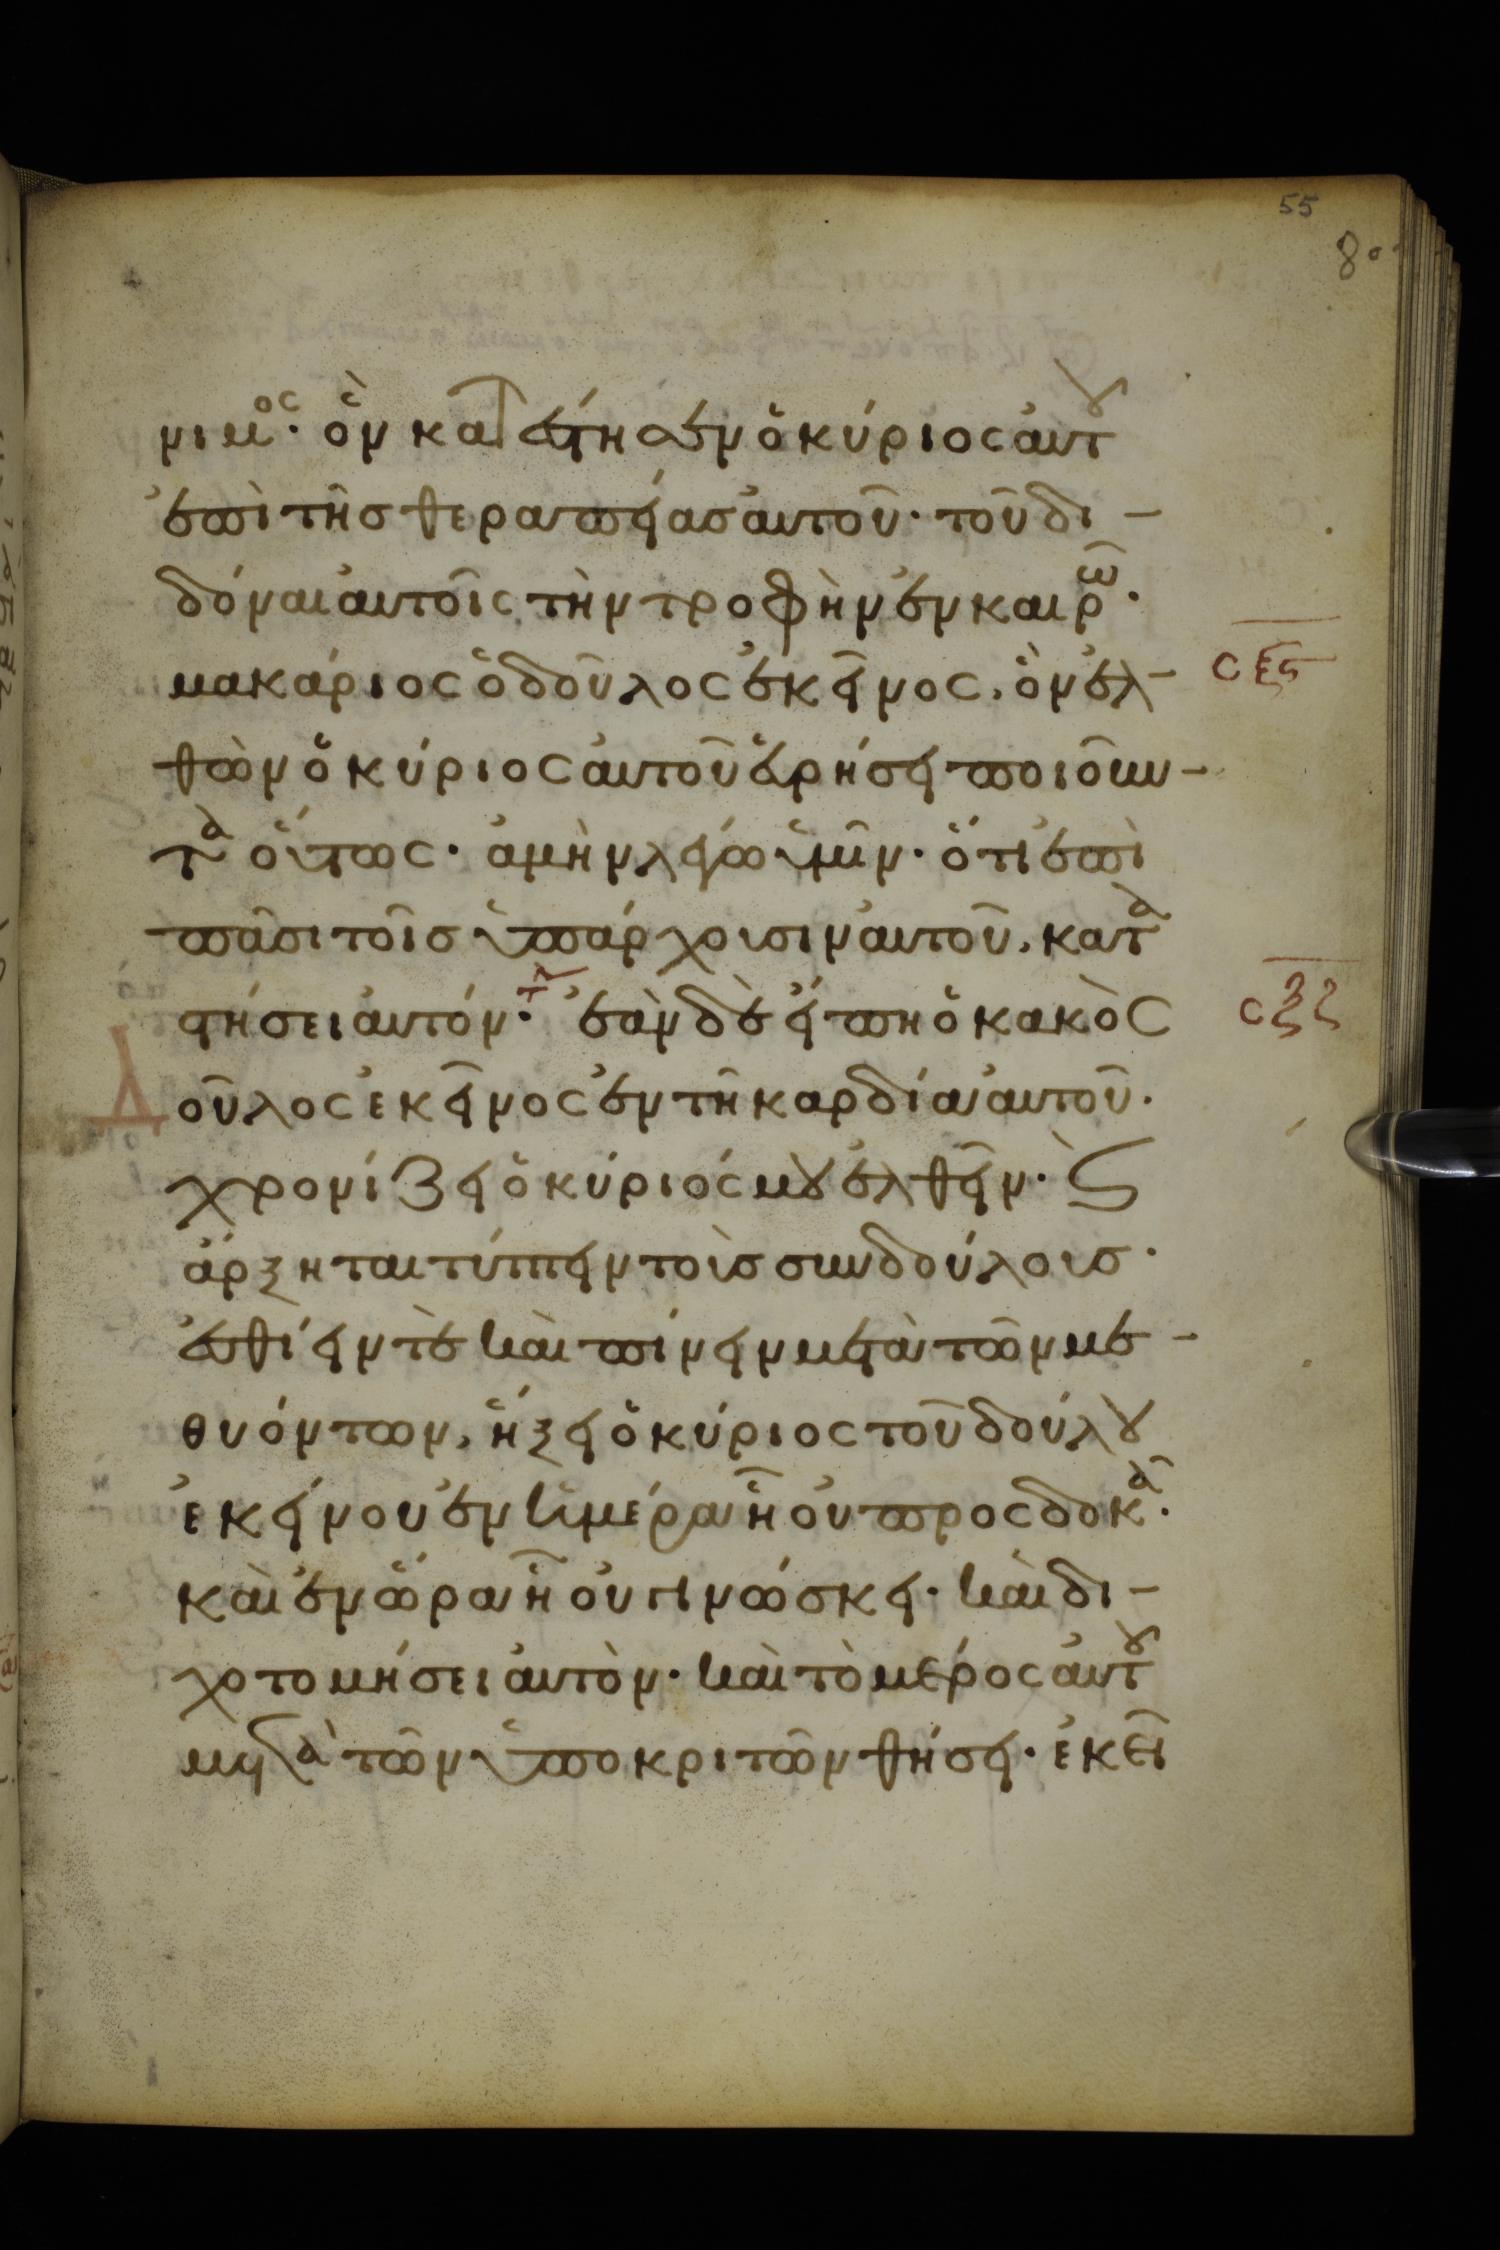 55
80
νιμος· ὃν κατέστησεν ὁ κύριος αὐτου
ἐπὶ τῆς θεραπείας αὐτοῦ· τοῦ δι-
δόναι αὐτοῖς τὴν τροφὴν ἐν καιρῶ·
μακάριος ὁ δοῦλος ἐκεῖνος, ὃν ἐλ-
σξϛ
θὼν ὁ κύριος αὐτοῦ εὑρήσει ποιοῦν-
τα οὕτως· ἀμὴν λέγω ὑμῖν· ὅτι ἐπὶ
πᾶσι τοῖς ὑπάρχουσιν αὐτοῦ, κατα
στήσει αὐτόν· ἐὰν δὲ εἴπη ὁ κακὸς
σξζ
δοῦλος ἐκεῖνος ἐν τῆ καρδία αὐτοῦ·
χρονίζει ὁ κύριός μου ἐλθεῖν· ϛ
ἄρξηται τύπτειν τοὺς συνδούλους·
ἐσθίειν τὲ καὶ πίνειν μετὰ τῶν με-
θυόντων, ἥξει ὁ κύριος τοῦ δούλου
ἐκείνου ἐν ἡμέρα ἧ οὐ προσδοκᾶ·
καὶ ἐν ὥρα ἧ οὐ γινώσκει· καὶ δι-
χοτομήσει αὐτὸν· καὶ τὸ μέρος αὐτου
μετὰ τῶν ὑποκριτῶν θήσει· ἐκεῖ